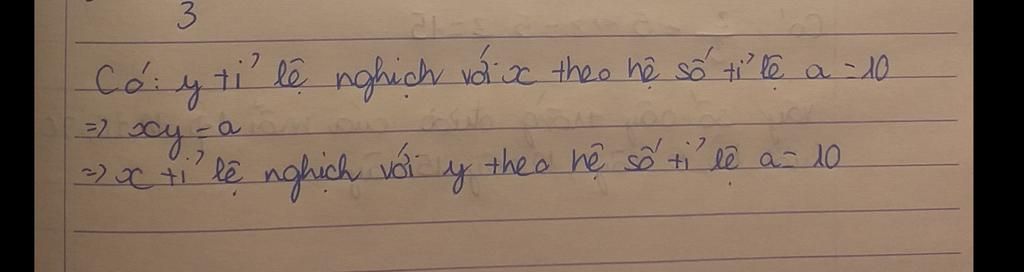 3
Có: y tỉ lệ nghịch với x theo hệ số tỉ lệ a = 10
=> xy = a
=> x tỉ lệ nghịch với y theo hệ số tỉ lệ a = 10